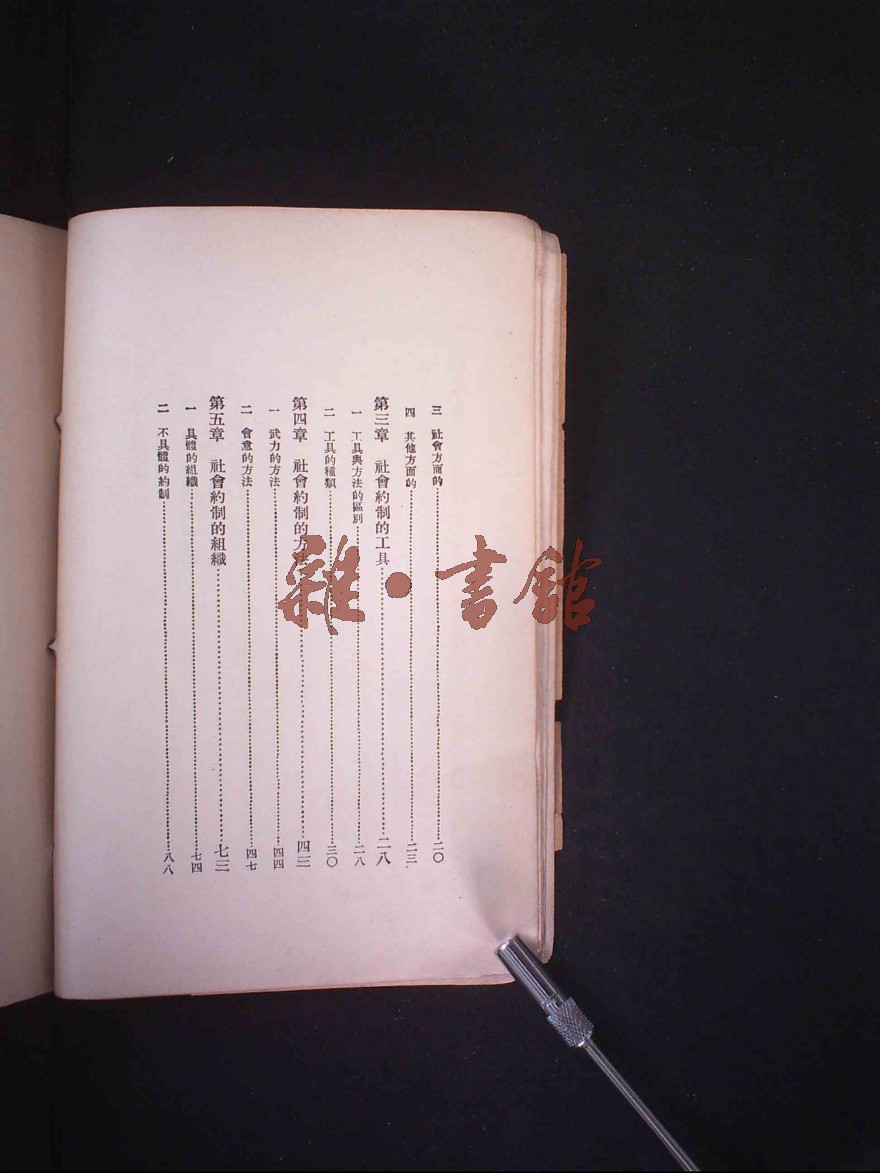 三 社會方面的……二〇
四 其他方面的……二三
第三章 社會約制的工具……二八
一 工具與方法的區別……二八
二 工具的種類……三〇
第四章 社會約制的方法……四三
一 武力的方法……四四
二 會意的方法……四七
第五章 社會約制的組織……七三
一 具體的組織……七四
二 不具體的約制……八八
雜·書館